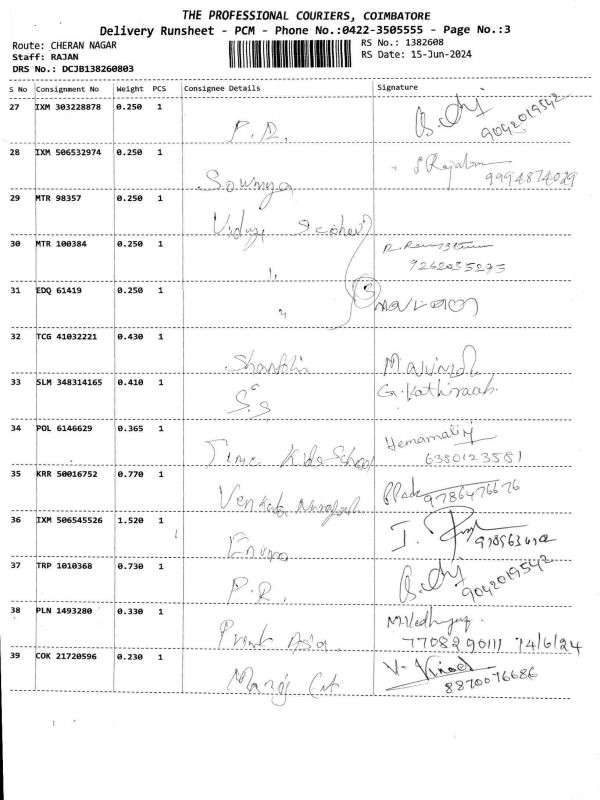 THE PROFESSIONAL COURIERS, COIMBATORE
Delivery Runsheet - PCM - Phone No.:0422-3505555 - Page No.:3
Route: CHERAN NAGAR
RS No.: 1382608
Staff: RAJAN
RS Date: 15-Jun-2024
DRS No.: DCJB138260803
S No Consignment No Weight PCS Consignee Details Signature
27 IXM 303228878 0.250 1
P.R. 9042019542
28 IXM 506532974 0.250 1
Sowmya 9994874029
29 MTR 98357 0.250 1
30 MTR 100384 0.250 1
9262035273
31 EDQ 61419 0.250 1
3
32 TCG 41032221 0.430 1
Shanthi
33 SLM 348314165 0.410 1 G. Kathiraah
S.S
34 POL 6146629 0.365 1 Hemamalini
Time Kids School 6380123581
35 KRR 50016752 0.770 1
Venkata 9786476676
36 IXM 506545526 1.520 1
37 TRP 1010368 0.730 1
P.R. 9042019542
38 PLN 1493280 0.330 1
Print Asia 7708290111 14/6/24
39 COK 21720596 0.230 1 V. Vinod
Manoj 8870076686